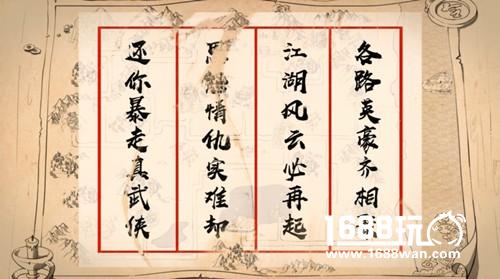 各路英豪齐相
江湖风云必再起
情仇实难却
还你暴走真武侠
1688玩
www.1688wan.com